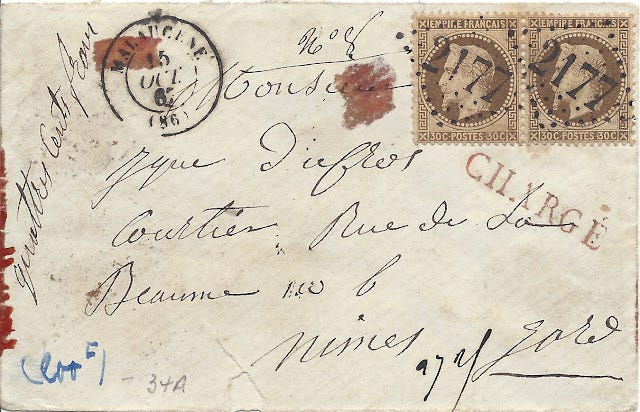 quattre Cents fran
MALAUCENE
15
OCT.
(86)
N° 8
EMPIRE FRANÇAIS
EMPIRE FRANÇAIS
2177
2177
30C·POSTES·30C
30C·POSTES·30C
CHARGÉ
Monsieur
Courtier Rue de La
Beaume no 6
Nimes Gard
34A